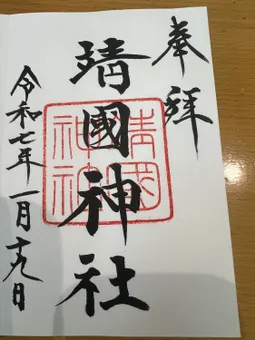 奉拝
靖國神社
靖國神社
令和七年一月十九日